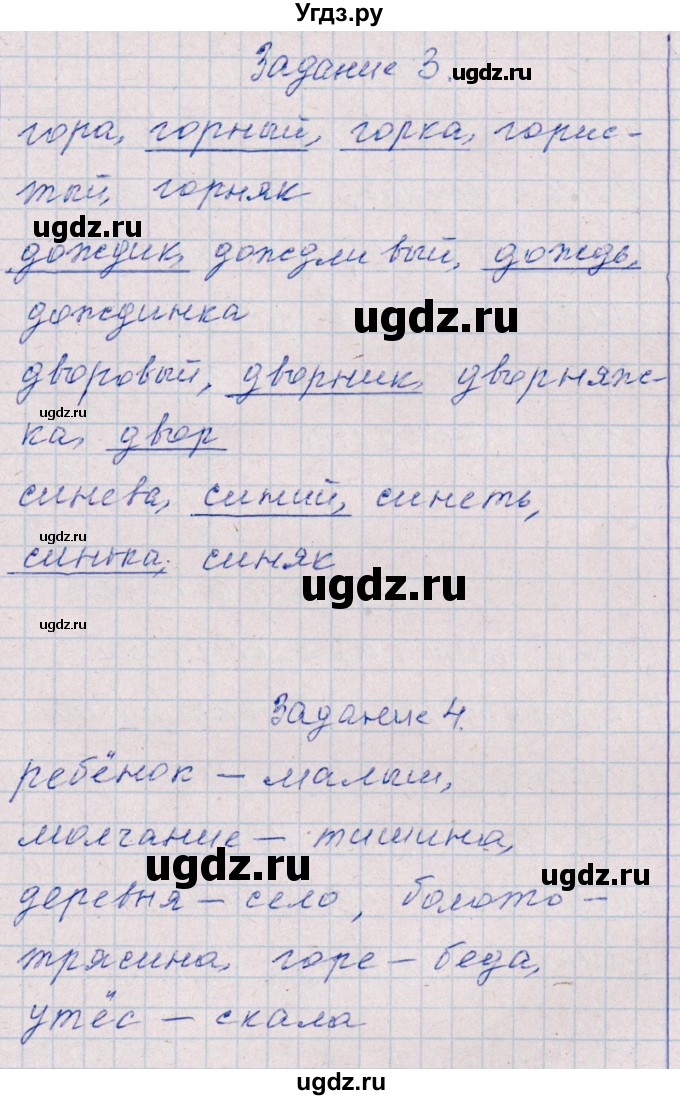 Угдз.ру
Задание 3.
ugdz.ru
гора, горный, горка, горис-
тый, горняк
ugdz.ru
дождик, дождливый, дождь,
дождинка
ugdz.ru
дворовый, дворник, дворняж-
ugdz.ru
ка, двор
синева, синий, синеть,
ugdz.ru
синька, синяк
ugdz.ru
ugdz.ru
Задание 4.
ребёнок – малыш,
молчание – тишина,
ugdz.ru
ugdz.ru
деревня – село, болото –
трясина, горе – беда,
утёс – скала
ugdz.ru
ugdz.ru